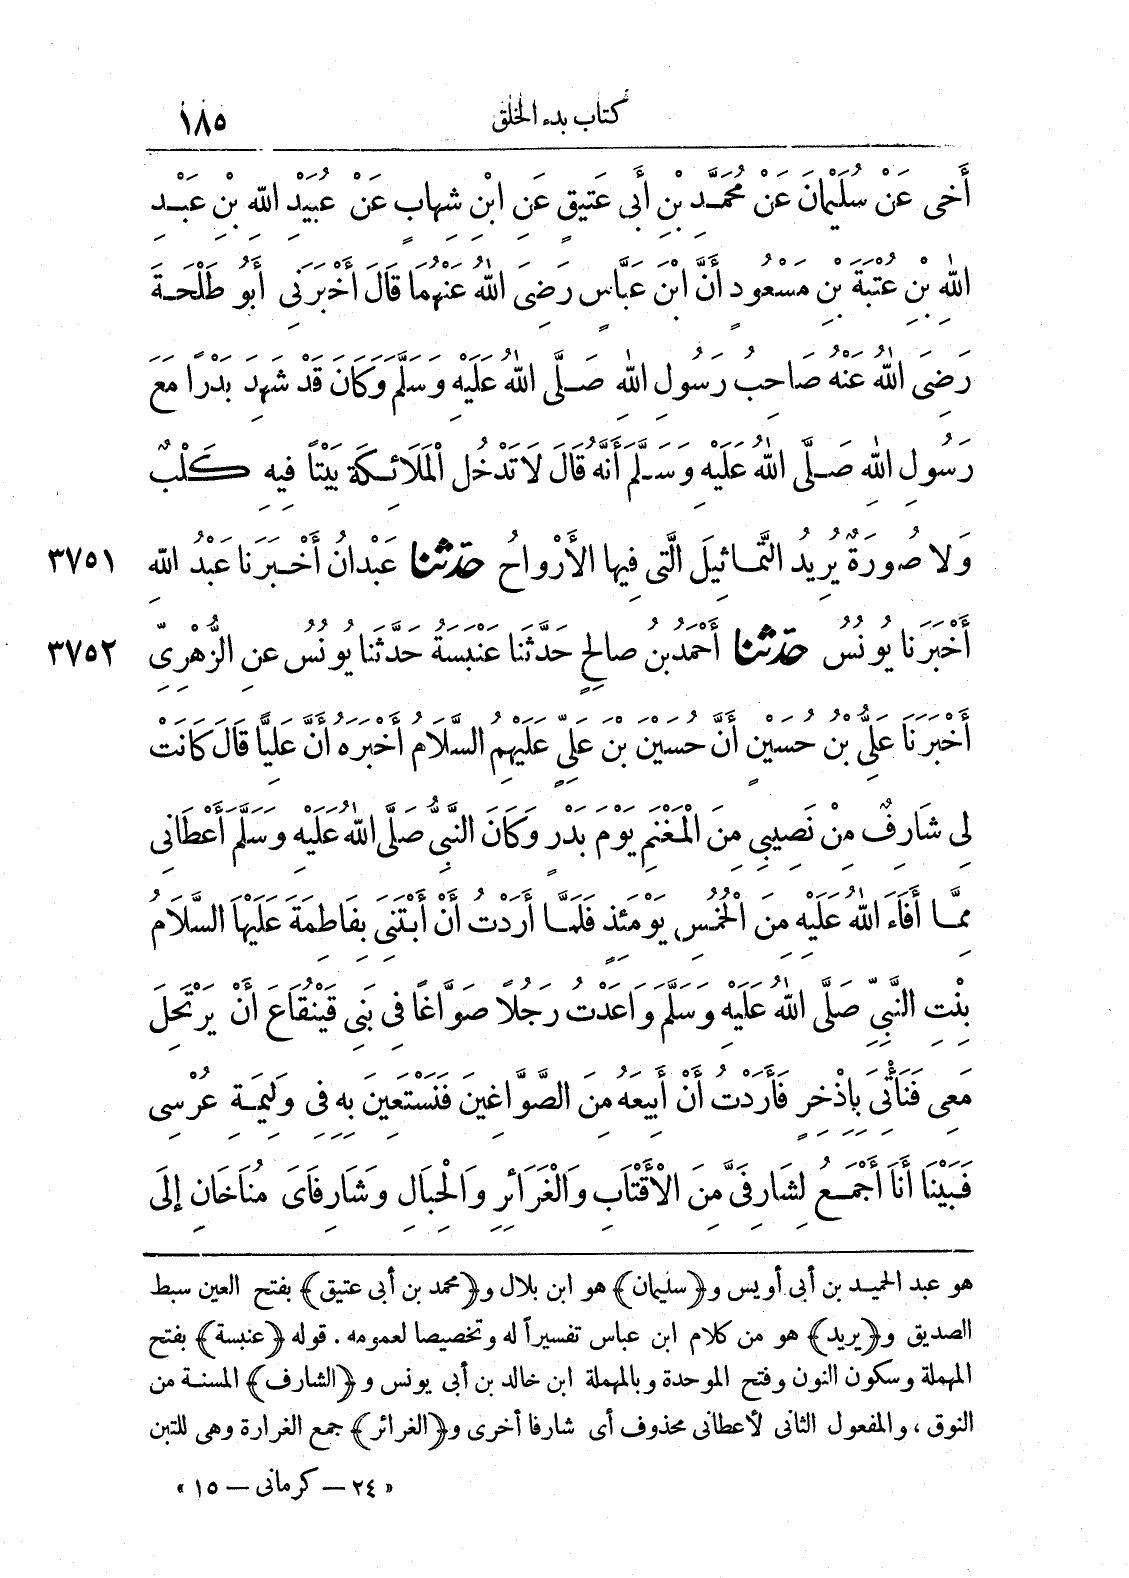 كتاب بدء الخلق ١٨٥
أَخِى عَنْ سُلَيْمَانَ عَنْ مُحَمَّدِ بْنِ أَبِى عَتِيقٍ عَنِ ابْنِ شِهَابٍ عَنْ عُبَيْدِ اللهِ بْنِ عَبْدِ
اللهِ بْنِ عُتْبَةَ بْنِ مَسْعُودٍ أَنَّ ابْنَ عَبَّاسٍ رَضِىَ اللهُ عَنْهُمَا قَالَ أَخْبَرَنِى أَبُو طَلْحَةَ
رَضِىَ اللهُ عَنْهُ صَاحِبُ رَسُولِ اللهِ صَلَّى اللهُ عَلَيْهِ وَسَلَّمَ وَكَانَ قَدْ شَهِدَ بَدْرًا مَعَ
رَسُولِ اللهِ صَلَّى اللهُ عَلَيْهِ وَسَلَّمَ أَنَّهُ قَالَ لَا تَدْخُلُ الْمَلَائِكَةُ بَيْتًا فِيهِ كَلْبٌ
وَلَا صُورَةٌ يُرِيدُ التَّمَاثِيلَ الَّتِى فِيهَا الْأَرْوَاحُ حَدَّثَنَا عَبْدَانُ أَخْبَرَنَا عَبْدُ اللهِ ٣٧٥١
أَخْبَرَنَا يُونُسُ حَدَّثَنَا أَحْمَدُ بْنُ صَالِحٍ حَدَّثَنَا عَنْبَسَةُ حَدَّثَنَا يُونُسُ عَنِ الزُّهْرِىِّ ٣٧٥٢
أَخْبَرَنَا عَلِىُّ بْنُ حُسَيْنٍ أَنَّ حُسَيْنَ بْنَ عَلِىٍّ عَلَيْهِمُ السَّلَامُ أَخْبَرَهُ أَنَّ عَلِيًّا قَالَ كَانَتْ
لِى شَارِفٌ مِنْ نَصِيبِى مِنَ الْمَغْنَمِ يَوْمَ بَدْرٍ وَكَانَ النَّبِىُّ صَلَّى اللهُ عَلَيْهِ وَسَلَّمَ أَعْطَانِى
مِمَّا أَفَاءَ اللهُ عَلَيْهِ مِنَ الْخُمُسِ يَوْمَئِذٍ فَلَمَّا أَرَدْتُ أَنْ أَبْتَنِىَ بِفَاطِمَةَ عَلَيْهَا السَّلَامُ
بِنْتِ النَّبِىِّ صَلَّى اللهُ عَلَيْهِ وَسَلَّمَ وَاعَدْتُ رَجُلًا صَوَّاغًا فِى بَنِى قَيْنُقَاعَ أَنْ يَرْتَحِلَ
مَعِى فَنَأْتِىَ بِإِذْخِرٍ فَأَرَدْتُ أَنْ أَبِيعَهُ مِنَ الصَّوَّاغِينَ فَنَسْتَعِينَ بِهِ فِى وَلِيمَةِ عُرْسِى
فَبَيْنَا أَنَا أَجْمَعُ لِشَارِفَىَّ مِنَ الْأَقْتَابِ وَالْغَرَائِرِ وَالْحِبَالِ وَشَارِفَاىَ مُنَاخَانِ إِلَى
هو عبد الحميد بن أبى أويس و﴿سليمان﴾ هو ابن بلال و﴿محمد بن أبى عتيق﴾ بفتح العين سبط
الصديق و﴿يريد﴾ هو من كلام ابن عباس تفسيراً له وتخصيصا لعمومه . قوله ﴿عنبسة﴾ بفتح
المهملة وسكون النون وفتح الموحدة وبالمهملة ابن خالد بن أبى يونس و﴿الشارف﴾ المسنة من
النوق ، والمفعول الثانى لأعطانى محذوف أى شارفا أخرى و﴿الغرائر﴾ جمع الغرارة وهى للتبن
« ٢٤ – كرمانى – ١٥ »